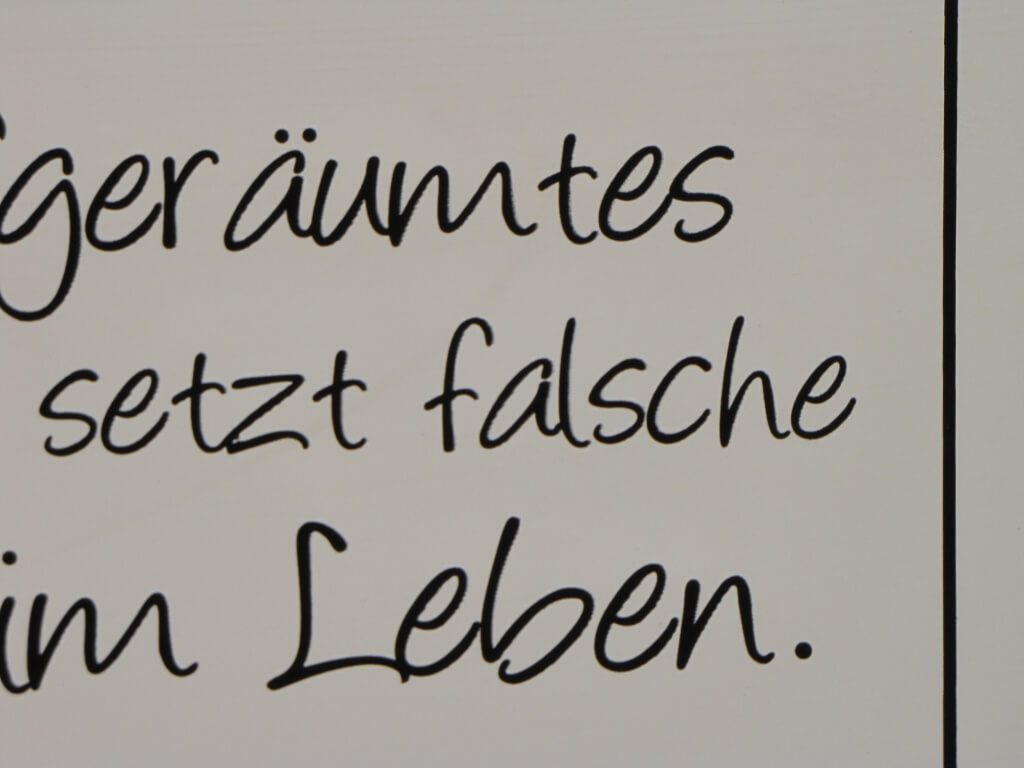 fgeräumtes
setzt falsche
im Leben.